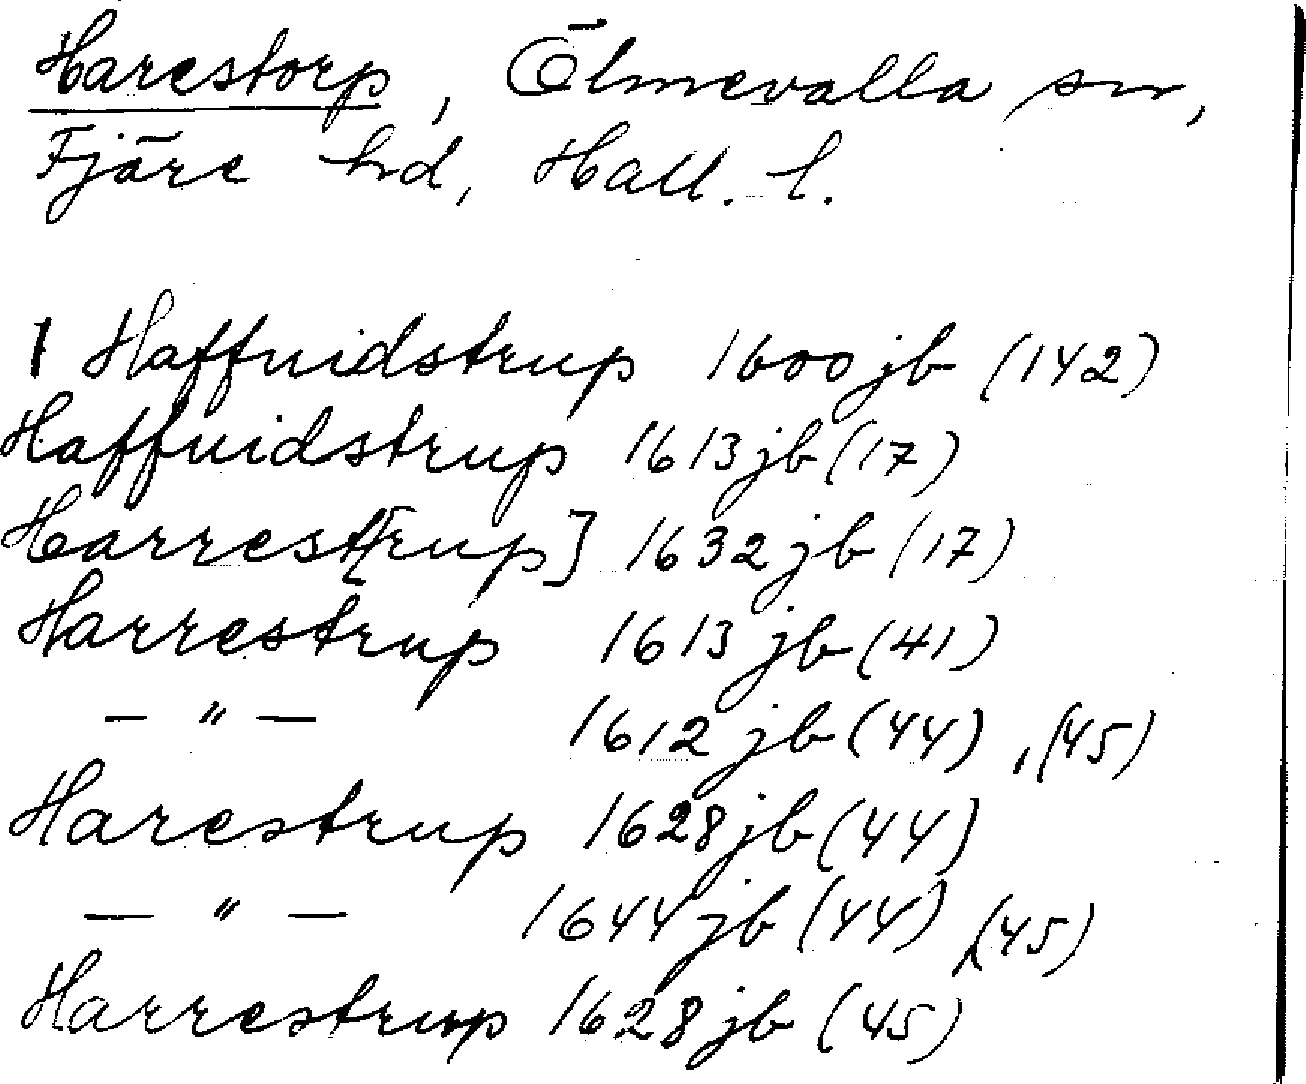 Harestorp, Ölmevalla sn,
Fjäre hd, Hall. l.
1 Haffuidstrup 1600 jb (142)
Haffuidstrup 1613 jb (17)
Harrest[rup] 1632 jb (17)
Harrestrup 1613 jb (41)
— " — 1612 jb (44), (45)
Harestrup 1628 jb (44)
— " — 1644 jb (44), (45)
Harrestrup 1628 jb (45)